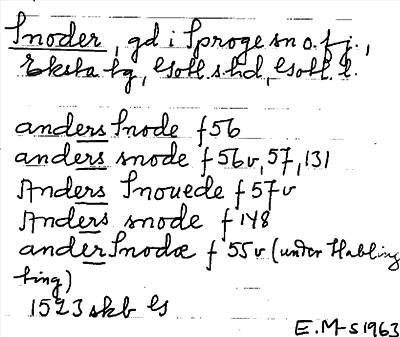 Snoder, gd i Sproge sn o. f. j.,
Eksta tg, Gotl. s. hd, Gotl. l.
anders Snode f 56
anders snode f 56v, 57, 131
Anders Snouede f 57v
Anders snode f 148
ander Snodæ f 55v (under Habling
ting)
1523 skb Gs
E.M-s 1963